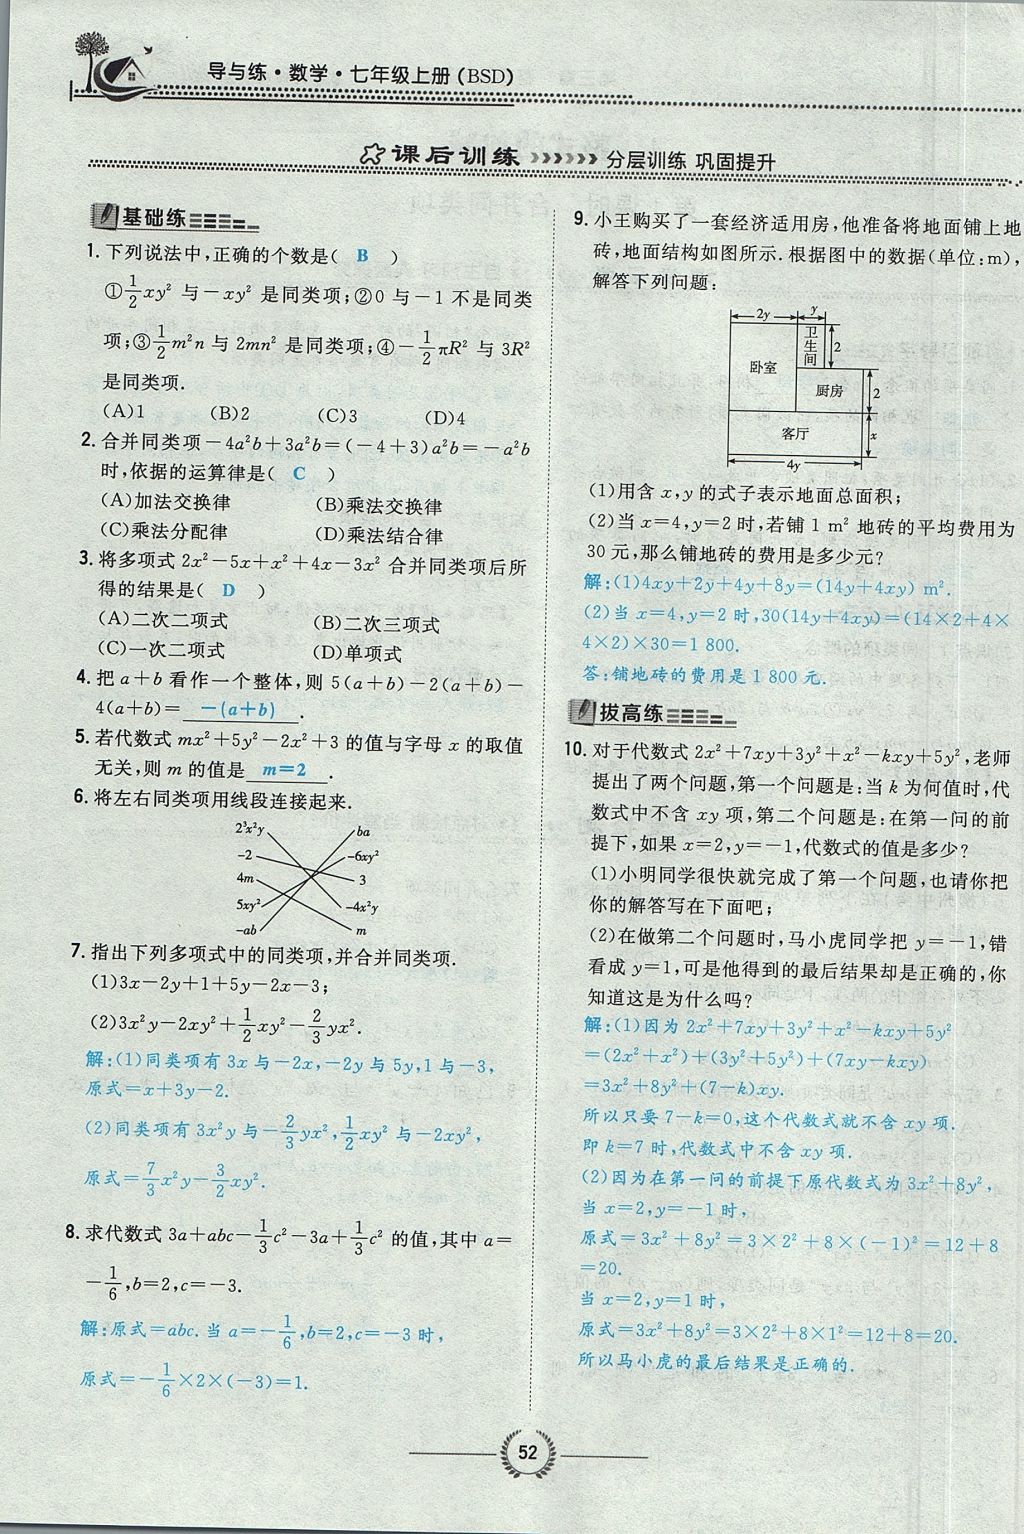 导与练·数学·七年级上册(BSD)
课后训练 分层训练 巩固提升
基础练
1. 下列说法中,正确的个数是( B )
①1/2xy²与-xy²是同类项;②0与-1不是同类
项;③1/3m²n与2mn²是同类项;④-1/2πR²与3R²
是同类项.
(A)1 (B)2 (C)3 (D)4
2. 合并同类项-4a²b+3a²b=(-4+3)a²b=-a²b
时,依据的运算律是( C )
(A)加法交换律 (B)乘法交换律
(C)乘法分配律 (D)乘法结合律
3. 将多项式2x²-5x+x²+4x-3x²合并同类项后所
得的结果是( D )
(A)二次二项式 (B)二次三项式
(C)一次二项式 (D)单项式
4. 把a+b看作一个整体,则5(a+b)-2(a+b)-
4(a+b)= -(a+b) .
5. 若代数式mx²+5y²-2x²+3的值与字母x的取值
无关,则m的值是 m=2 .
6. 将左右同类项用线段连接起来.
2³x²y ba
-2 -6xy²
4m 3
5xy² -4x²y
-ab m
7. 指出下列多项式中的同类项,并合并同类项.
(1)3x-2y+1+5y-2x-3;
(2)3x²y-2xy²+1/2xy²-2/3yx².
解:(1)同类项有3x与-2x,-2y与5y,1与-3,
原式=x+3y-2.
(2)同类项有3x²y与-2/3yx²,1/2xy²与-2xy²,
原式=7/3x²y-3/2xy².
8. 求代数式3a+abc-1/3c²-3a+1/3c²的值,其中a=
-1/6,b=2,c=-3.
解:原式=abc.当a=-1/6,b=2,c=-3时,
原式=-1/6×2×(-3)=1.
9. 小王购买了一套经济适用房,他准备将地面铺上地
砖,地面结构如图所示.根据图中的数据(单位:m),
解答下列问题:
2y y
卫生间 2
卧室
厨房 2
客厅 x
4y
(1)用含x,y的式子表示地面总面积;
(2)当x=4,y=2时,若铺1 m²地砖的平均费用为
30元,那么铺地砖的费用是多少元?
解:(1)4xy+2y+4y+8y=(14y+4xy) m².
(2)当x=4,y=2时,30(14y+4xy)=(14×2+4×
4×2)×30=1 800.
答:铺地砖的费用是1 800元.
拔高练
10. 对于代数式2x²+7xy+3y²+x²-kxy+5y²,老师
提出了两个问题,第一个问题是:当k为何值时,代
数式中不含xy项,第二个问题是:在第一问的前
提下,如果x=2,y=-1,代数式的值是多少?
(1)小明同学很快就完成了第一个问题,也请你把
你的解答写在下面吧;
(2)在做第二个问题时,马小虎同学把y=-1,错
看成y=1,可是他得到的最后结果却是正确的,你
知道这是为什么吗?
解:(1)因为2x²+7xy+3y²+x²-kxy+5y²
=(2x²+x²)+(3y²+5y²)+(7xy-kxy)
=3x²+8y²+(7-k)xy.
所以只要7-k=0,这个代数式就不含xy项.
即k=7时,代数式中不含xy项.
(2)因为在第一问的前提下原代数式为3x²+8y²,
当x=2,y=-1时,
原式=3x²+8y²=3×2²+8×(-1)²=12+8
=20.
当x=2,y=1时,
原式=3x²+8y²=3×2²+8×1²=12+8=20.
所以马小虎的最后结果是正确的.
52